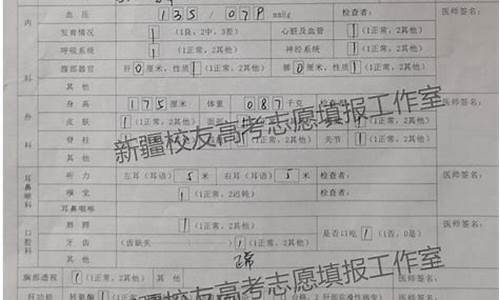 内科
血压 135/07P mmHg 检查者: 医师签名:
发育情况 1 (1良, 2中, 3差) 心脏及血管 1 (1正常, 2其他)
呼吸系统 1 (1正常, 2其他) 神经系统 1 (1正常, 2其他)
腹部器官 肝0厘米, 性质1 (1正常, 2其他) 脾0厘米, 性质1 (1正常, 2其他)
其他
外科
身高 175厘米 体重 087千克 医师签名:
皮肤 1 (1正常, 2其他) 面部
脊柱 1 关节 1 (1正常, 2其他)
其他
新疆校友高考志愿填报工作室
耳鼻喉科
听力 左耳(耳语) 5 米 右耳(耳语) 5 米 检查者: 医师签名:
嗅觉 1 (1正常, 2迟钝) 检查者:
耳鼻咽喉
口腔科
唇腭 1 (1正常, 2其他) 是否口吃 1 (1否, 0是) 医师签名:
牙齿 (齿缺失 1 (1正常, 2其他) 检查者:
其他 正常
新疆校友高考志愿填报工作室
胸部透视 1 (1正常, 2其他) 其他 医师签名:
肝功能 转氨酶 1 (1正常 医师签名: